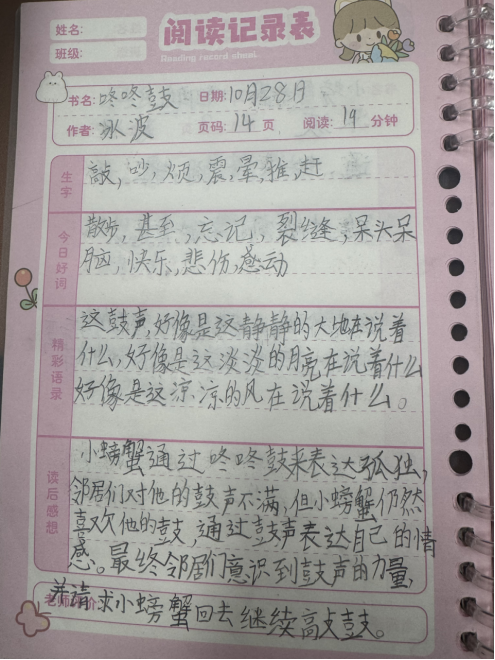 姓名:
阅读记录表
班级:
Reading record sheet
书名: 咚咚鼓 日期: 10月28日
作者: 冰波 页码: 14 页 阅读: 19 分钟
生字
敲,吵,烦,震,晕,推,赶
今日好词
散步,甚至,忘记,裂缝,呆头呆
脑,快乐,悲伤,感动
精彩语录
这鼓声,好像是这静静的大地在说着
什么,好像是这淡淡的月亮在说着什么
好像是这凉凉的风在说着什么。
读后感想
小螃蟹通过咚咚鼓来表达孤独,
邻居们对他的鼓声不满,但小螃蟹仍然
喜欢他的鼓,通过鼓声表达自己的情
感。最终邻居们意识到鼓声的力量,
并请求小螃蟹回去继续敲鼓。